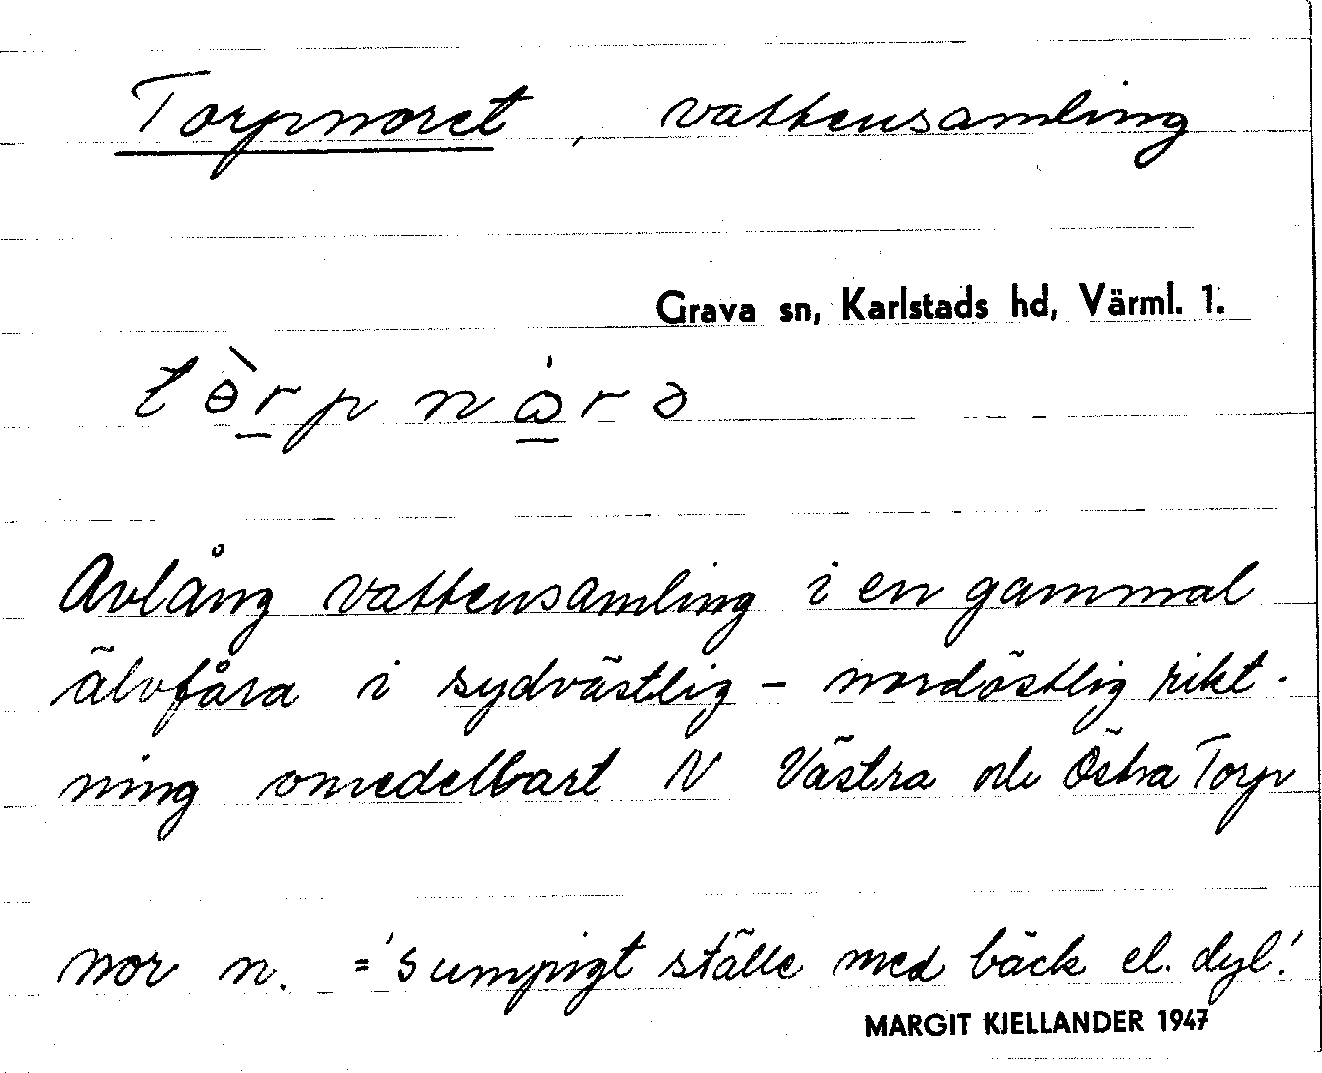 Torpnoret, vattensamling
Grava sn, Karlstads hd, Värml. 1.
tɵ̀r̲pnώ̲rə
Avlång vattensamling i en gammal
älvfåra i sydvästlig - nordöstlig rikt-
ning omedelbart N Västra och Östra Torp
nor n. = 'sumpigt ställe med bäck el. dyl.'
MARGIT KJELLANDER 1947